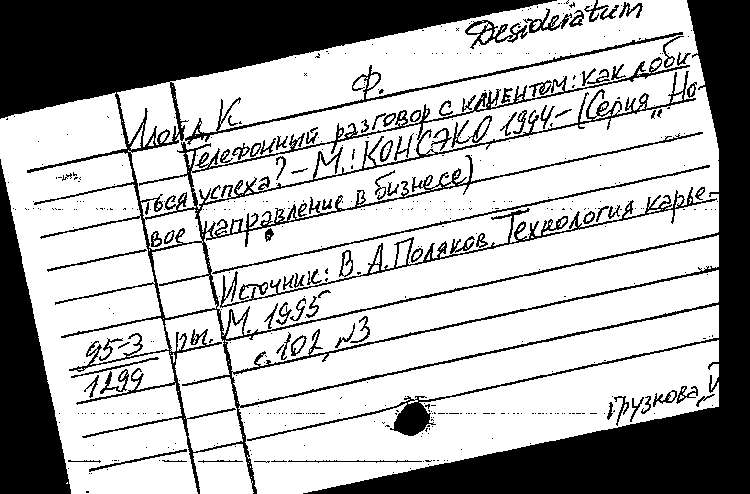 Desideratum
Ф.
Ллойд, К.
Телефонный разговор с клиентом: как доби-
ться успеха? – М.: КОНСЭКО, 1994. – (Серия „Но-
вое направление в бизнесе)
Источник: В. А. Поляков. Технология карье-
ры. М., 1995
с. 102, №3
95-3
1299
Грузкова,